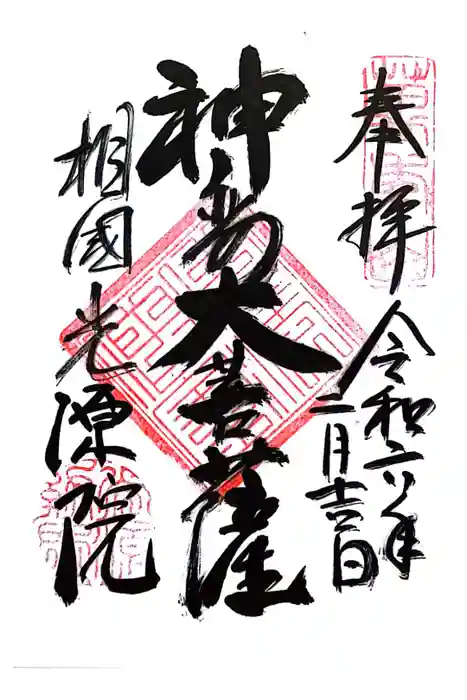 奉拝
令和六年
二月吉日
神大菩薩
相國光源院